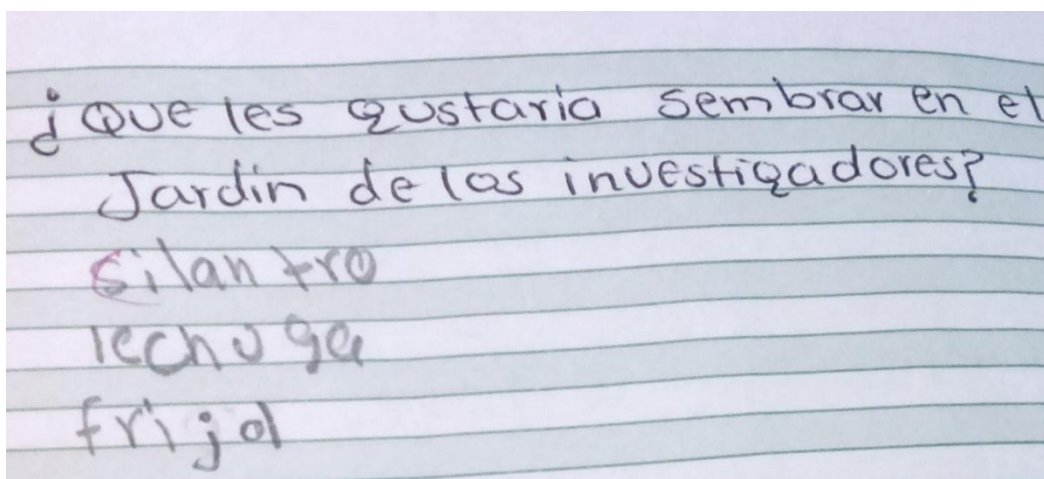 ¿Que les gustaria sembrar en el
Jardin de los investigadores?
silantro
lechuga
frijol